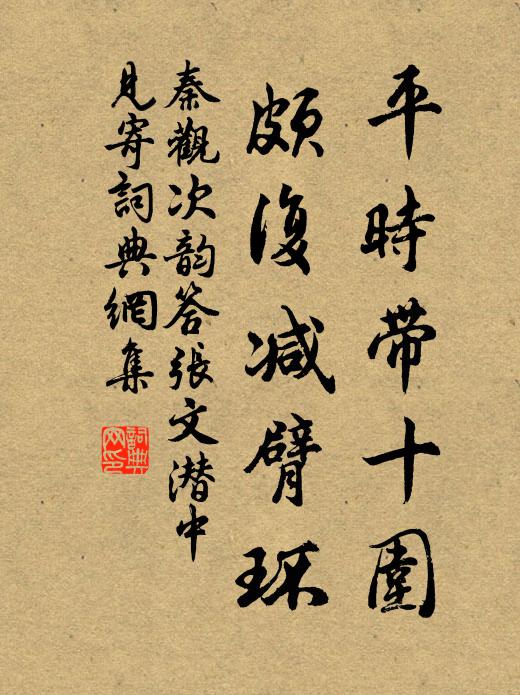 平時帶十圍
頗復減臂環
秦觀次韵答張文潛中
見寄詞典網集
詞典网印